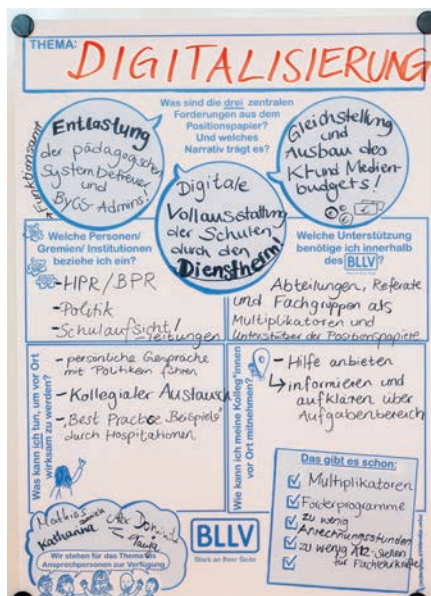 THEMA:
DIGITALISIERUNG
Was sind die drei zentralen
Forderungen aus dem
Positionspapier?
Und welches
Narrativ trägt es?
Funktionsamt
Entlastung
der pädagogischen
Systembetreuer
und
ByCS-Admins!
Digitale
Vollausstattung
der Schulen
durch den
Dienstherrn!
Gleichstellung
und
Ausbau des
KI- und Medien-
budgets!
Welche Personen/
Gremien/ Institutionen
beziehe ich ein?
- HPR/BPR
- Politik
- Schulaufsicht/
-leitungen
Welche Unterstützung
benötige ich innerhalb
des BLLV?
Abteilungen, Referate
und Fachgruppen als
Multiplikatoren und
Unterstützer der Positionspapiere
Was kann ich tun, um vor Ort
wirksam zu werden?
- persönliche Gespräche
mit Politikern führen
- Kollegialer Austausch
- "Best Practice Beispiele"
durch Hospitationen
Wie kann ich meine Kolleg*innen
vor Ort mitnehmen?
- Hilfe anbieten
↳ informieren und
aufklären über
Aufgabenbereich
Das gibt es schon:
Multiplikatoren
Förderprogramme
zu wenig
Anrechnungsstunden
zu wenig A12-Stellen
für Fachlehrkräfte
Katharina
Wir stehen für das Thema als
Ansprechpersonen zur Verfügung
BLLV
Stark an Ihrer Seite